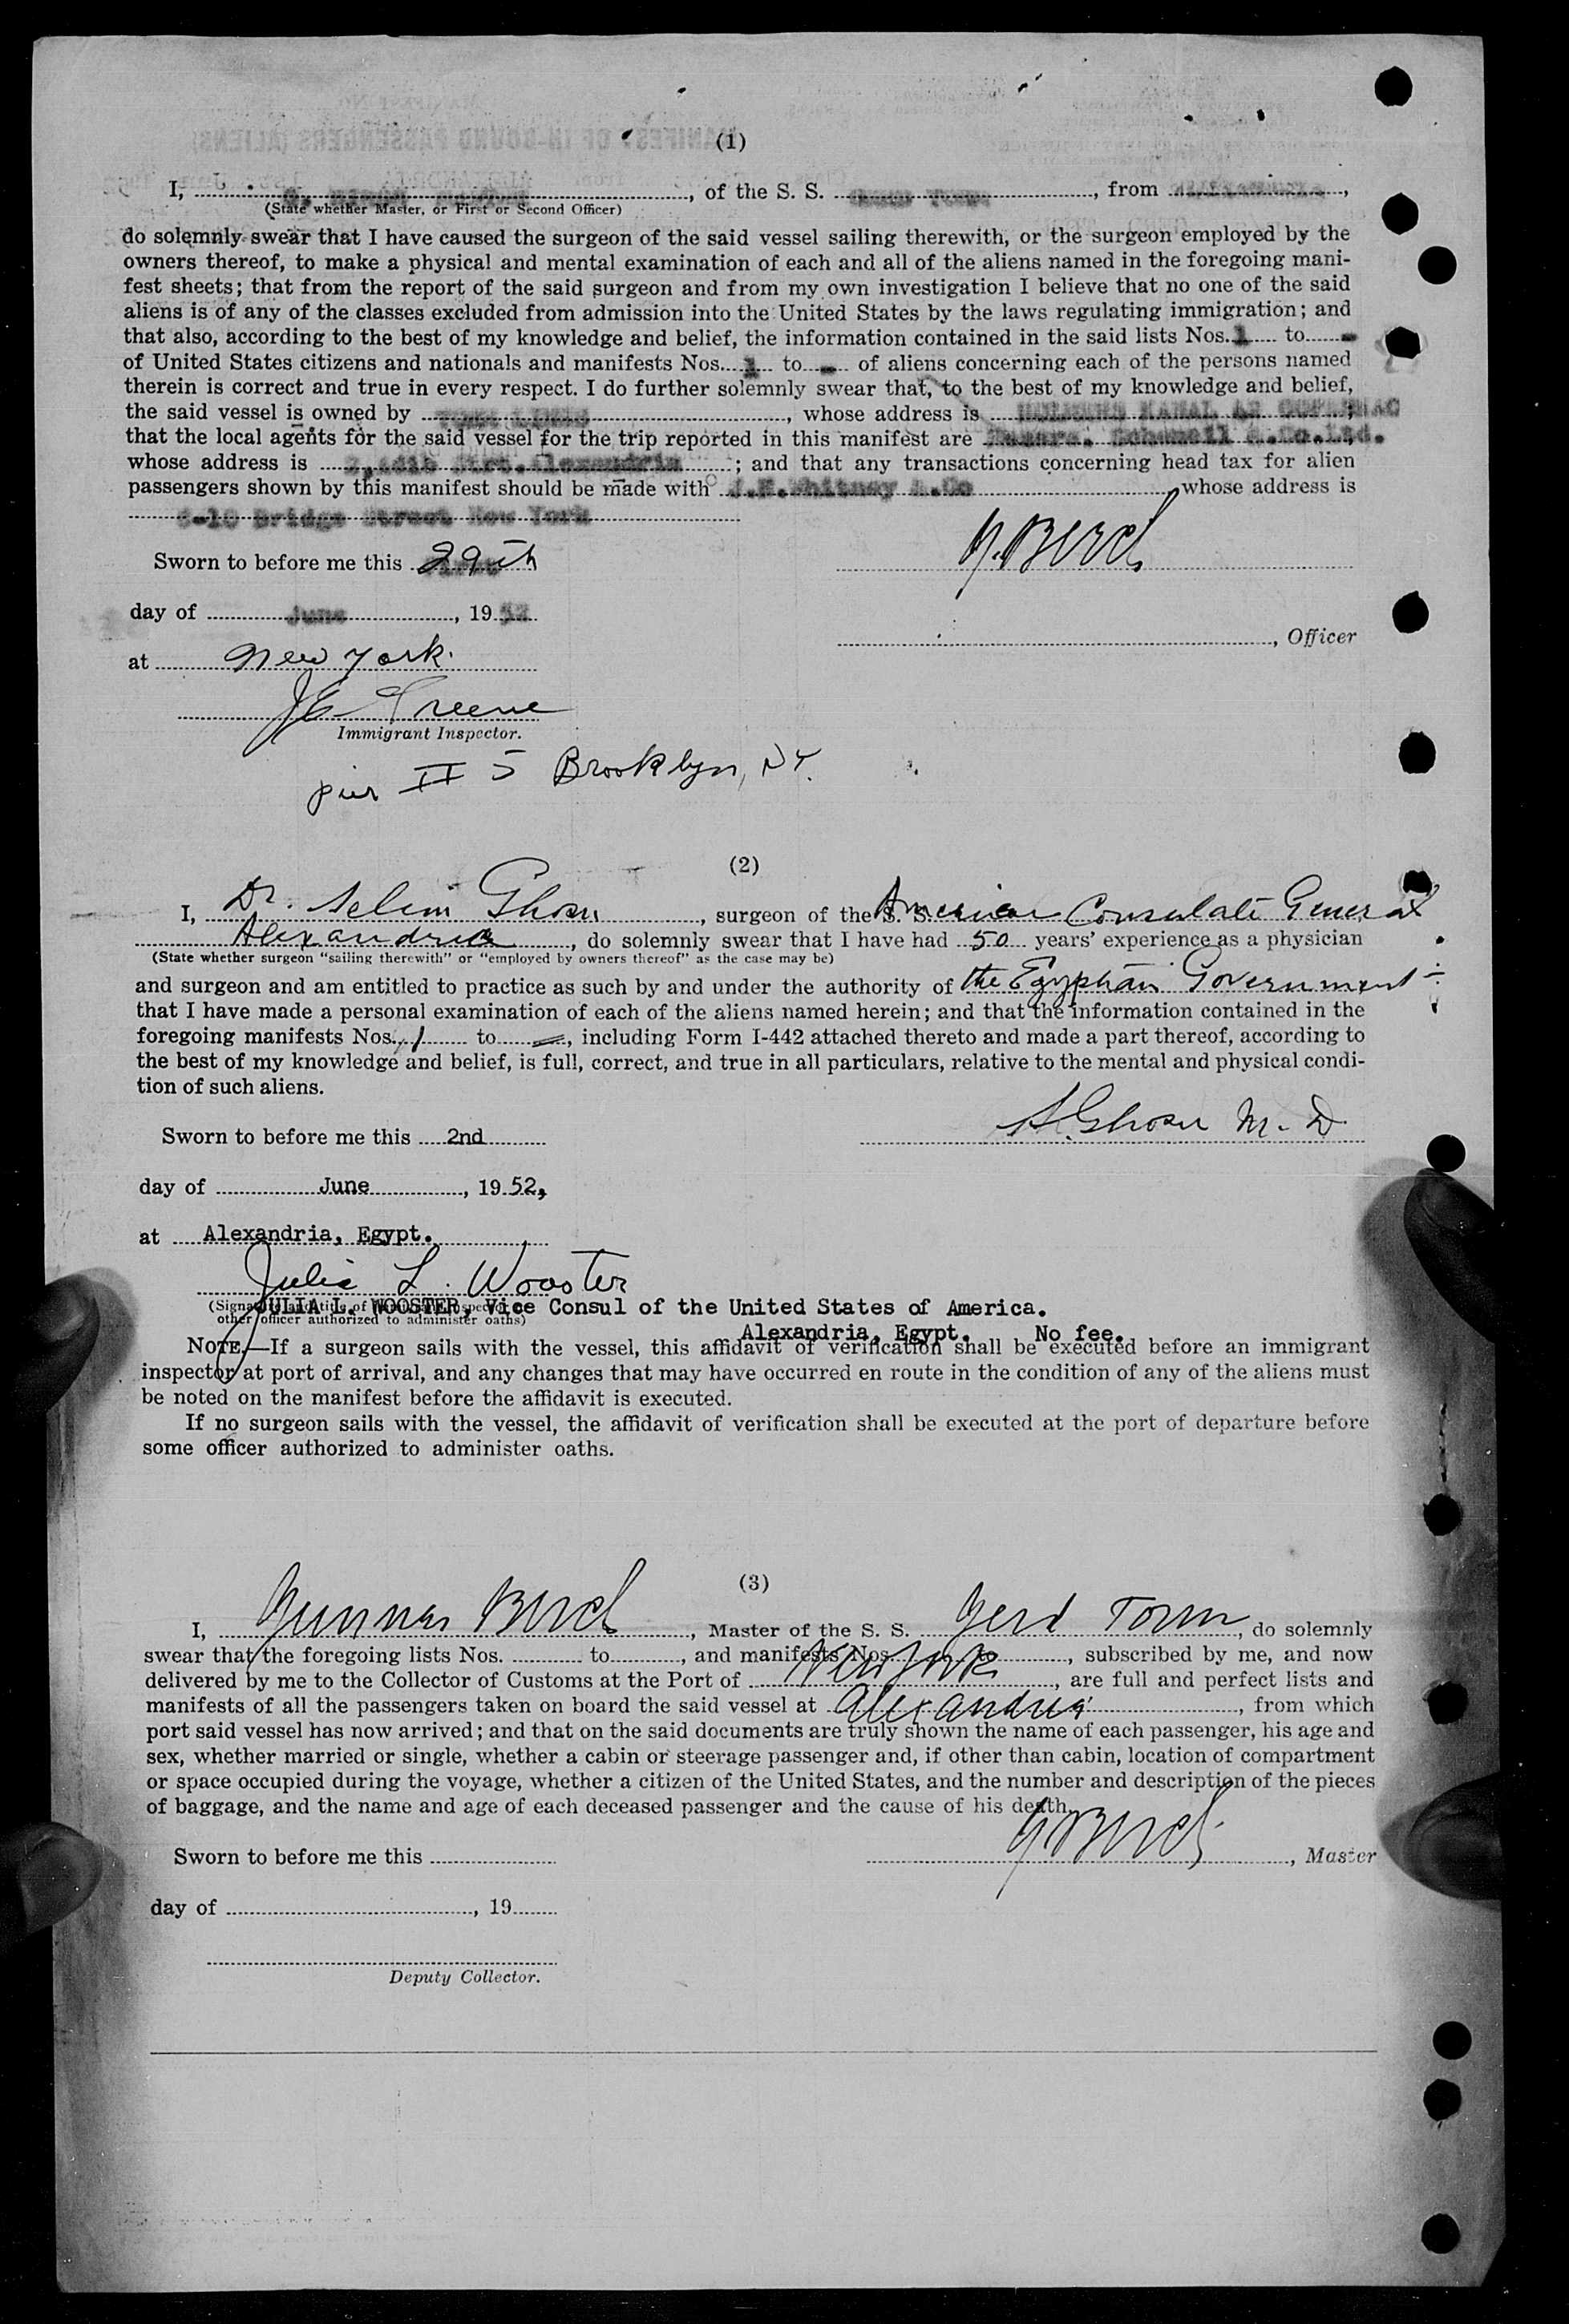 (1)
I, , of the S. S. , from ,
(State whether Master, or First or Second Officer)
do solemnly swear that I have caused the surgeon of the said vessel sailing therewith, or the surgeon employed by the
owners thereof, to make a physical and mental examination of each and all of the aliens named in the foregoing mani-
fest sheets; that from the report of the said surgeon and from my own investigation I believe that no one of the said
aliens is of any of the classes excluded from admission into the United States by the laws regulating immigration; and
that also, according to the best of my knowledge and belief, the information contained in the said lists Nos. 1 to -
of United States citizens and nationals and manifests Nos. 1 to - of aliens concerning each of the persons named
therein is correct and true in every respect. I do further solemnly swear that, to the best of my knowledge and belief,
the said vessel is owned by , whose address is ;
that the local agents for the said vessel for the trip reported in this manifest are
whose address is Alexandria ; and that any transactions concerning head tax for alien
passengers shown by this manifest should be made with J.H.Whitney &.Co whose address is
8-10 Bridge Street New York
Sworn to before me this 29th G. Berch
day of June, 19 52
, Officer
at New York.
J E Greene
Immigrant Inspector.
pier 5 Brooklyn, NY.
(2)
I, Dr. Selim Ghosn, surgeon of the S. S. American Consulate General
Alexandria, do solemnly swear that I have had 50 years' experience as a physician
(State whether surgeon "sailing therewith" or "employed by owners thereof" as the case may be)
and surgeon and am entitled to practice as such by and under the authority of the Egyptian Government
that I have made a personal examination of each of the aliens named herein; and that the information contained in the
foregoing manifests Nos. 1 to -, including Form I-442 attached thereto and made a part thereof, according to
the best of my knowledge and belief, is full, correct, and true in all particulars, relative to the mental and physical condi-
tion of such aliens.
S. Ghosn M. D.
Sworn to before me this 2nd
day of June, 19 52,
at Alexandria, Egypt.
Julia L. Wooster
JULIA L. WOOSTER, Vice Consul of the United States of America.
other officer authorized to administer oaths)
Alexandria, Egypt. No fee.
NOTE.—If a surgeon sails with the vessel, this affidavit of verification shall be executed before an immigrant
inspector at port of arrival, and any changes that may have occurred en route in the condition of any of the aliens must
be noted on the manifest before the affidavit is executed.
If no surgeon sails with the vessel, the affidavit of verification shall be executed at the port of departure before
some officer authorized to administer oaths.
(3)
I, Gunnar Berch, Master of the S. S. Gerd Torm, do solemnly
swear that the foregoing lists Nos. to , and manifests Nos. to , subscribed by me, and now
delivered by me to the Collector of Customs at the Port of New York, are full and perfect lists and
manifests of all the passengers taken on board the said vessel at Alexandria, from which
port said vessel has now arrived; and that on the said documents are truly shown the name of each passenger, his age and
sex, whether married or single, whether a cabin or steerage passenger and, if other than cabin, location of compartment
or space occupied during the voyage, whether a citizen of the United States, and the number and description of the pieces
of baggage, and the name and age of each deceased passenger and the cause of his death.
Sworn to before me this G Berch, Master
day of , 19
Deputy Collector.